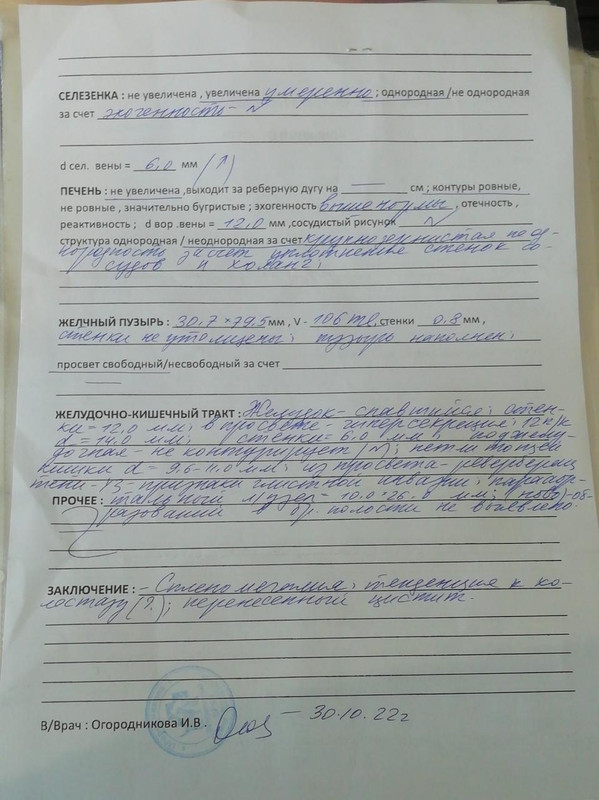 СЕЛЕЗЕНКА : не увеличена , увеличена умеренно ; однородная /не однородная
за счет эхогенность- N
d сел. вены = 6,0 мм (↑)
ПЕЧЕНЬ : не увеличена ,выходит за реберную дугу на — см ; контуры ровные,
не ровные , значительно бугристые ; эхогенность выше нормы , отечность ,
реактивность ; d вор .вены = 12,0 мм ,сосудистый рисунок N
структура однородная / неоднородная за счет крупнозернистая неод-
нородность за счет уплотнения стенок со-
судов и холанг;
ЖЕЛЧНЫЙ ПУЗЫРЬ : 30,7*79,5 мм , V - 106 ml, стенки 0,8 мм ,
стенки не утолщены; пузырь наполнен;
просвет свободный/несвободный за счет
—
ЖЕЛУДОЧНО-КИШЕЧНЫЙ ТРАКТ : Желудок- спавшийся; стен-
ки= 12.0 мм; в просвете- гиперсекреция; 12 п/к
d = 14.0 мм; стенки= 6.0 мм; поджелу-
дочная - не контурирует /N/; петли тощей
кишки d = 9,6-11.0 мм; из просвета- ревербера
тени- признаки глистной инвазии;
ПРОЧЕЕ : тальный л/узел= 10.0*26.0 мм; (ново)-об-
разований в бр. полости не выявлено.
ЗАКЛЮЧЕНИЕ : - Спленомегалия; тенденция к хо-
лестазу (?.); перенесенный цистит.
В/Врач : Огородникова И.В . — 30.10.22г